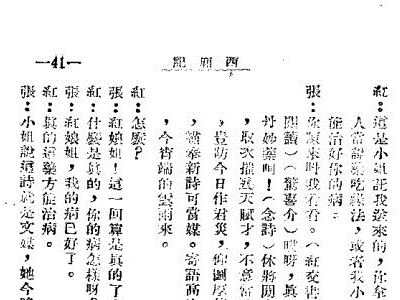 西廂記
—41—
紅：這是小姐託我送來的，你拿
人常說藥吃緣法，或者我小
能治好你的病。
張：你讓來叫我看看。（紅交書
開讀）（驚喜介）哎呀，真
丹妙藥呵！（念詩）休將閒
，取次摧殘天賦才，不意當
，豈防今日作君災，仰圖厚
，謹奉新詩可當媒。寄語高
，今宵端的雲雨來。
紅：怎麼？
張：紅娘姐！這一回算是真的了
紅：什麼是真的，你的病怎樣呀？
張：紅娘姐，我的病已好了。
紅：真的這藥方能治病。
張：小姐說這詩就是文媒，她今晚